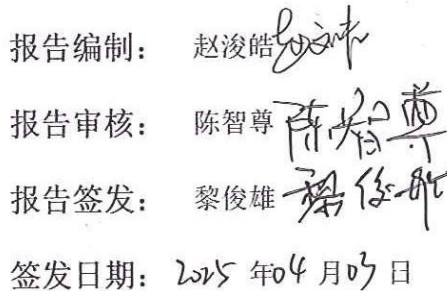 报告编制： 赵浚皓
报告审核： 陈智尊 陈智尊
报告签发： 黎俊雄 黎俊雄
签发日期： 2025 年04 月03 日